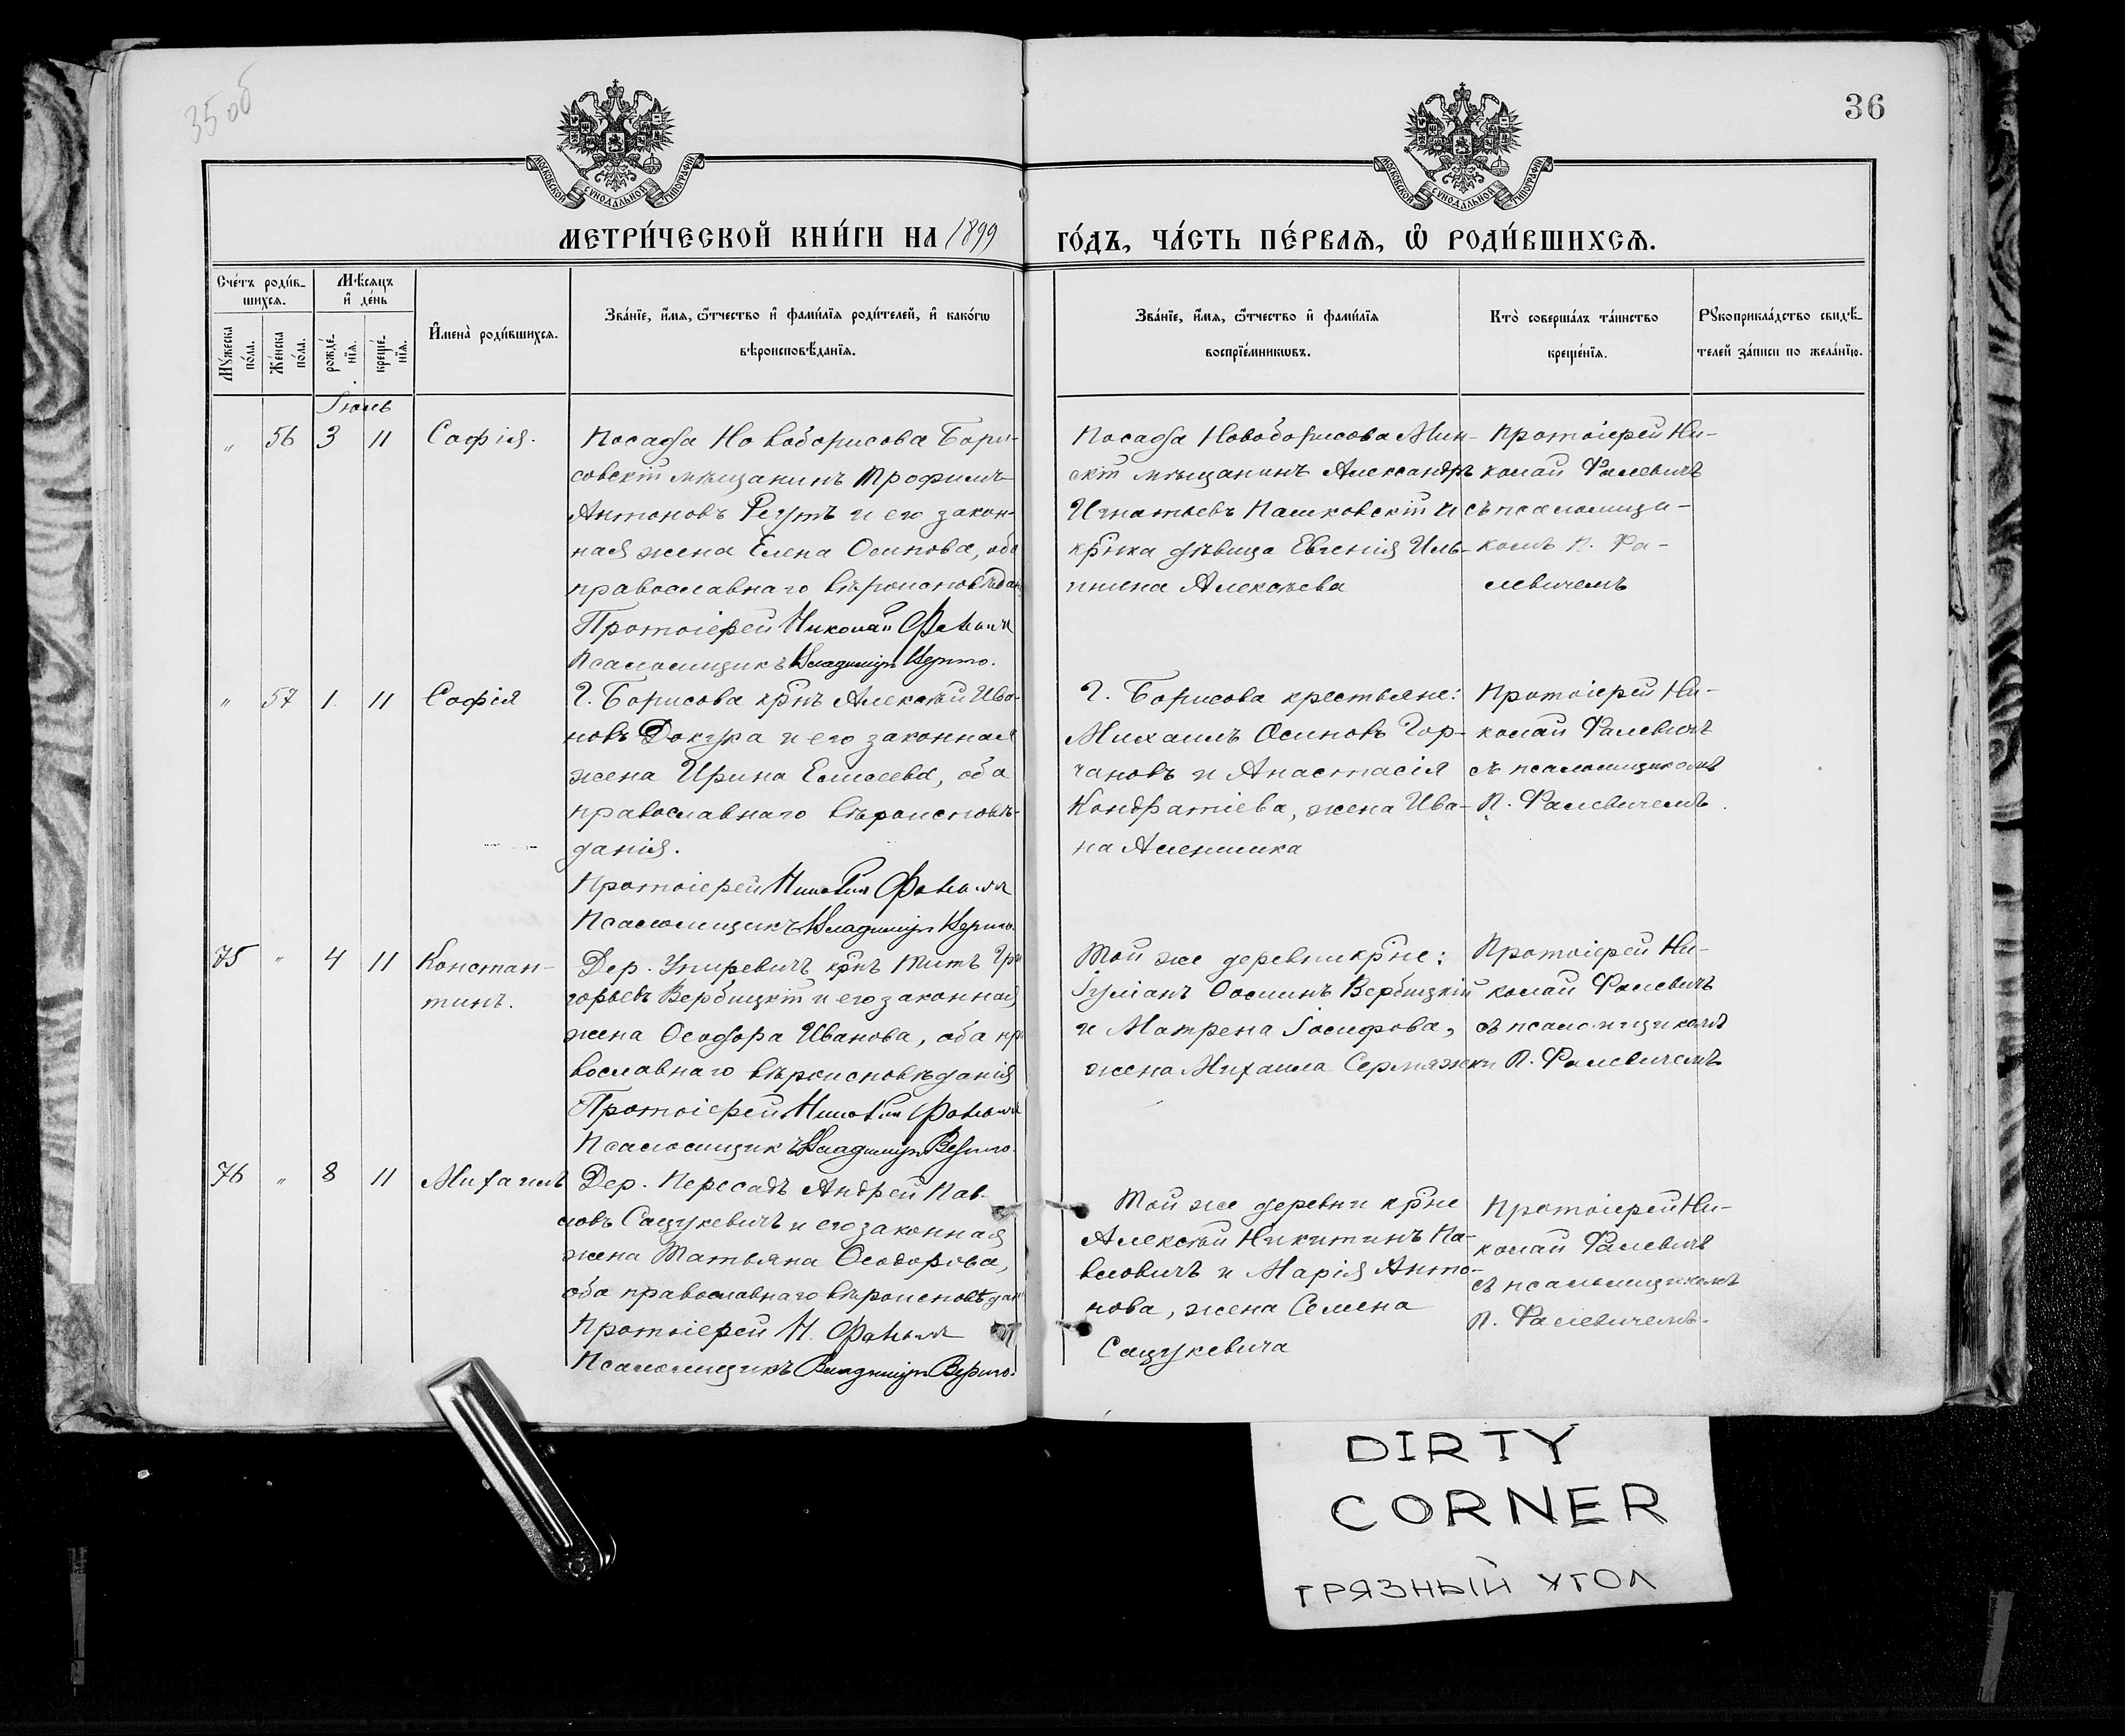 35 об
36
МОСКОВСКОЙ СѴНОДАЛЬНОЙ ТИПОГРАФІИ
МОСКОВСКОЙ СѴНОДАЛЬНОЙ ТИПОГРАФІИ
МЕТРИ́ЧЕСКОЙ КНИ́ГИ НА 1899
ГО́ДЪ, ЧА́СТЬ ПЕ́РВАѦ, Ѡ҆ РОДИ́ВШИХСѦ.
Сче́тъ роди́в-
шихсѧ.
Мꙋ́жеска
по́ла.
Же́нска
по́ла.
Мѣ́сѧцъ
и҆ де́нь
рожде́-
нїѧ.
креще́-
нїѧ.
И҆мена̀ роди́вшихсѧ.
Зва́нїе, и҆́мѧ, ѻ҆́тчество и҆ фами́лїѧ роди́телей, и҆ како́гѡ
вѣроисповѣ́данїѧ.
Зва́нїе, и҆́мѧ, ѻ҆́тчество и҆ фами́лїѧ
воспрїе́мникѡвъ.
Кто̀ соверша́лъ та́инство
креще́нїѧ.
Рꙋкоприкла́дство свидѣ́-
телей за́писи по жела́нїю.
Іюль
„ 56 3 11 Софія.
Посада Новоборисова Бори-
совскій мѣщанинъ Трофимъ
Антоновъ Регутъ и его закон-
ная жена Елена Осипова, оба
православнаго вѣроисповѣдан
Протоіерей Николай Фалевич
Псаломщикъ Владимір
Посада Новоборисова Мин-
скій мѣщанинъ Александръ
Игнатьевъ Пашковскій и
кр̃нка дѣвица Евгенія Иль-
инина Алексѣева
Протоіерей Ни-
колай Фалевичъ
съ псаломщи-
комъ П. Фа-
левичемъ
„ 57 1 11 Софія
Г. Борисова кр̃нъ Алексѣй Ива-
новъ Докука и его законная
жена Ирина Елисеева, оба
православнаго вѣроисповѣ-
данія.
Протоіерей Николай Фалевич
Псаломщикъ Владимір
Г. Борисова крестьяне:
Михаилъ Осиповъ Гор-
чановъ и Анастасія
Кондратіева, жена Ива-
на Аленшика
Протоіерей Ни-
колай Фалевичъ
съ псаломщикомъ
П. Фалевичемъ.
75 „ 4 11 Констан-
тинъ.
Дер. Упиревичъ кр̃нъ Титъ Гри
горьевъ Вербицкій и его законная
жена Ѳеодора Иванова, оба пра
вославнаго вѣроисповѣданія
Протоіерей Николай Фалевич
Псаломщикъ Владимір
Той же деревни кр̃не:
Іуліанъ Ѳоминъ Вербицкій
и Матрена Іосифова,
жена Михаила Сермяжки
Протоіерей Ни-
колай Фалевичъ
съ псаломщикомъ
П. Фалевичемъ
76 „ 8 11 Михаилъ
Дер. Пересадъ Андрей Пав-
ловъ Сацукевичъ и его законная
жена Татьяна Ѳеодорова,
оба православнаго вѣроисповѣдан
Протоіерей Н. Фалевич
Псаломщикъ Владимір
Той же деревни кр̃не
Алексѣй Никитинъ Па-
вловичъ и Марія Анто-
нова, жена Семена
Сацукевича
Протоіерей Ни-
колай Фалевичъ
съ псаломщикомъ
П. Фалевичемъ.
DIRTY
CORNER
ГРЯЗНЫЙ УГОЛ